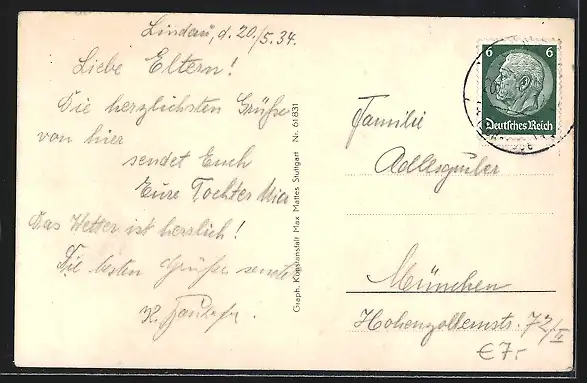 Lindau, d. 20./5.34.
Liebe Eltern!
Die herzlichsten Grüße
von hier
sendet Euch
Eure Tochter
Das Wetter ist herrlich!
Die besten Grüße sendet
Graph. Kunstanstalt Max Mattes Stuttgart Nr. 61831
6 6
Deutsches Reich
Familie
Adlesgruber
München
Hohenzollernstr. 72/II
€7.-